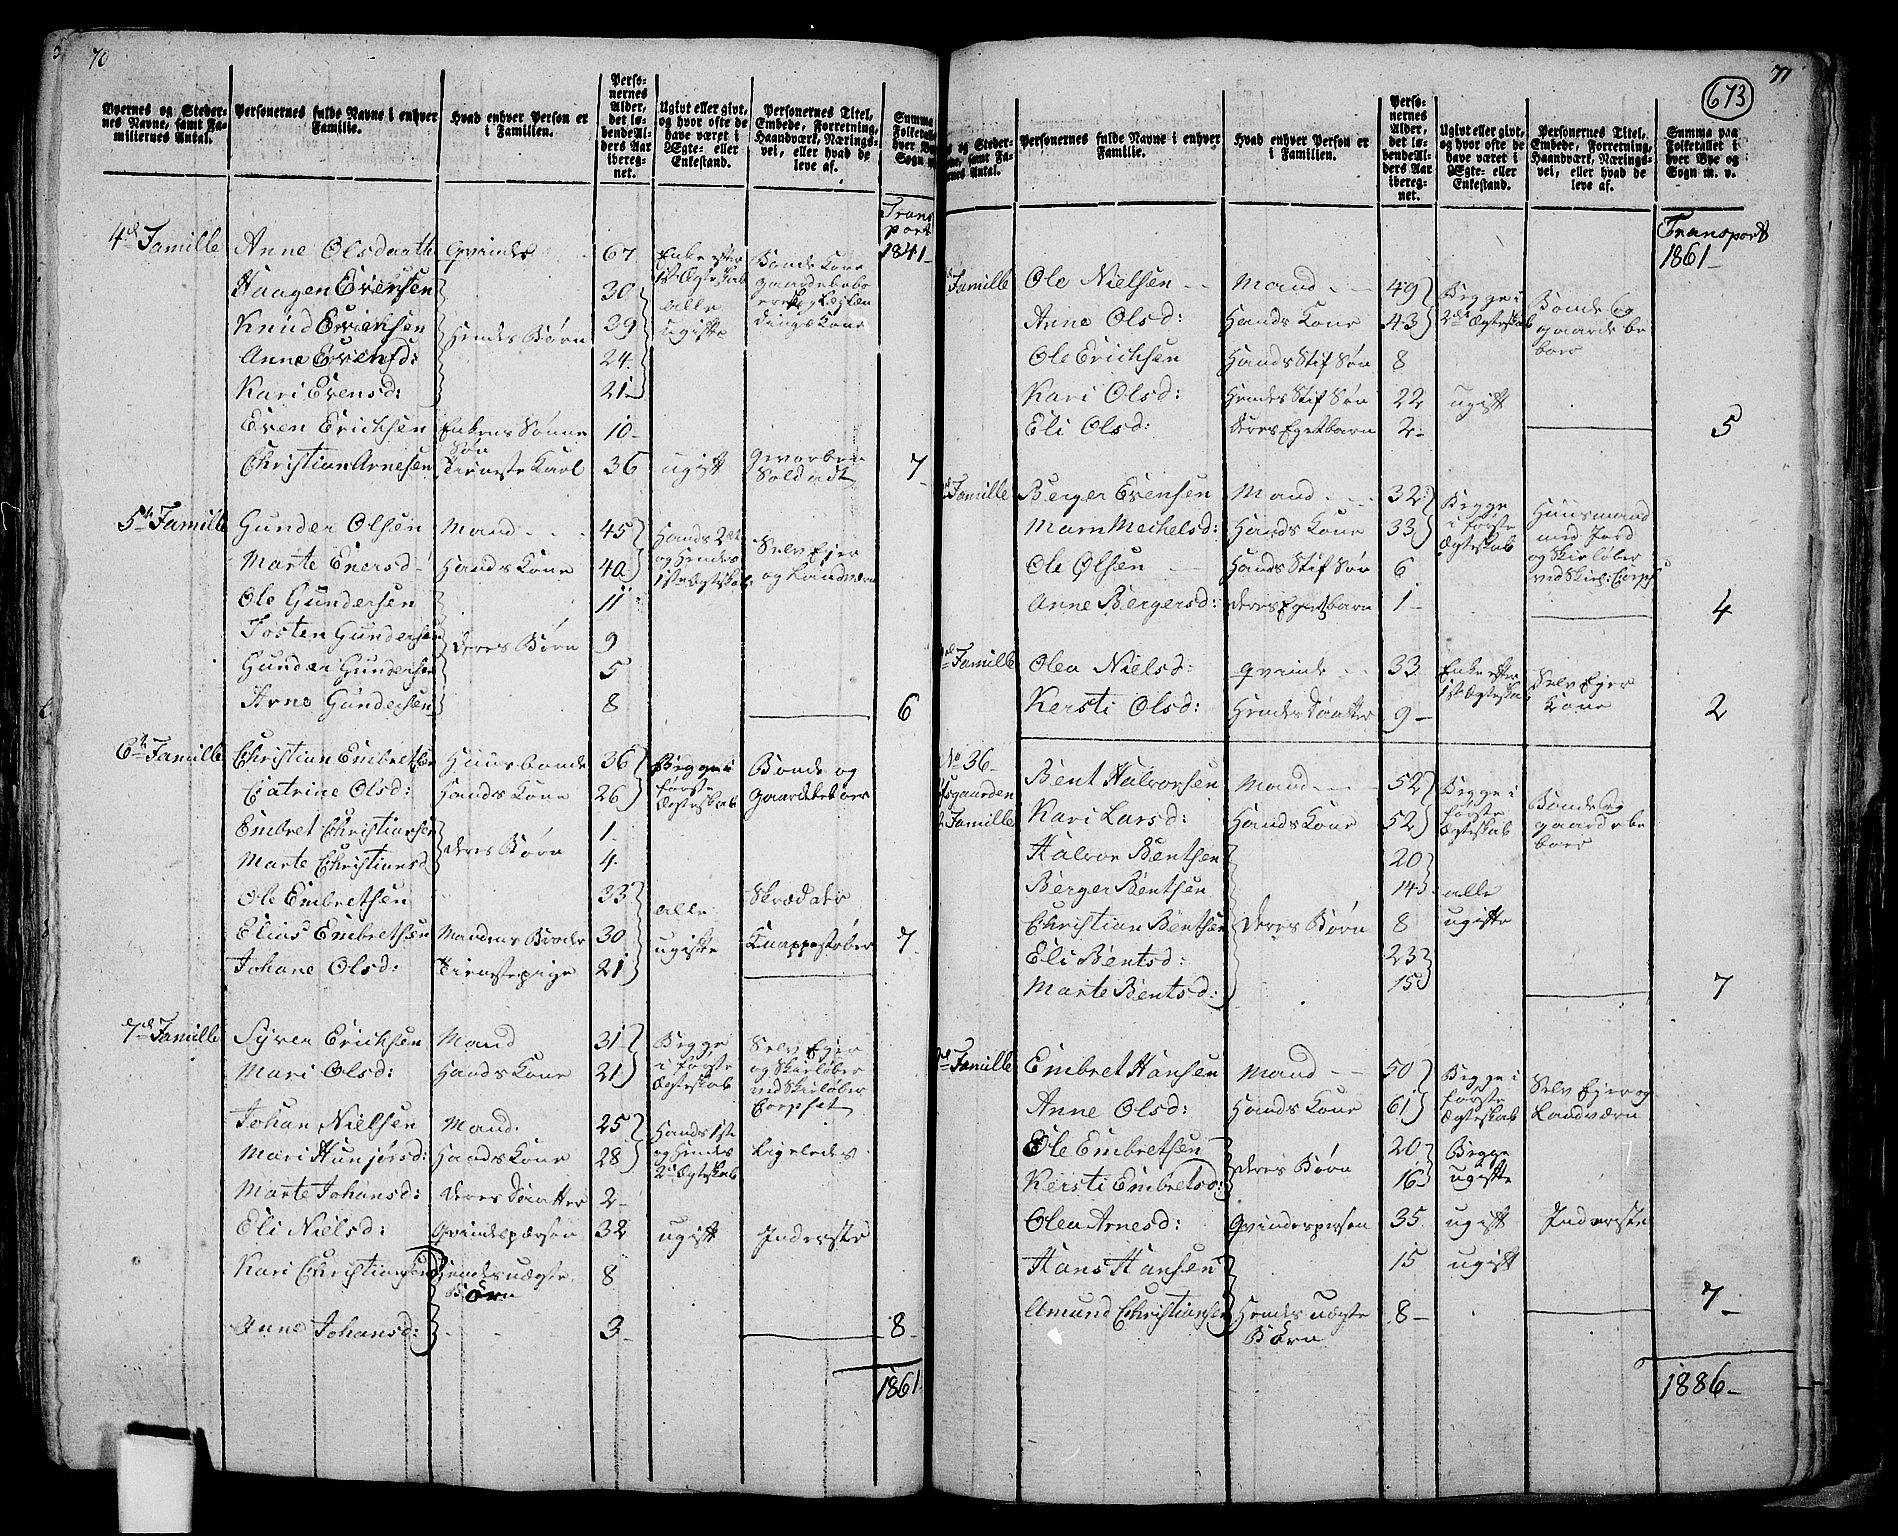 70
Byernes og Steder-
nes Navne, samt Fa-
miliernes Antal.
Personernes fulde Navne i enhver
Familie.
Hvad enhver Person er
i Familien.
Perso-
nernes
Alder,
det lø-
bende Al-
ders Aar
ibereg-
net.
Ugivt eller givt,
og hvor ofte de
have været i
Ægte- eller
Enkestand.
Personernes Titel,
Embede, Forretning,
Haandværk, Nærings-
vei, eller hvad de
leve af.
Summa
Folketalle
hver Bye
Sogn m.
Trans
port
1841
4de Familie Anne Olsdaatter Qvinde 67 Enke efter 1ste Ægteskab Bonde Kone
Haagen Evensen 30 alle ugifte
Knud Evensen Hendes Børn 39
Anne Evensd: 24
Kari Evensd: 21
Even Erichsen Enkens Sønne Søn 10
Christian Arnesen Tieneste Karl 36 ugift Gevorben Soldadt 7
5te Familie Gunder Olsen Mand 45 Hands 2det og Hendes 1ste Ægteskab Selv Ejer og Landværn
Marte Enersd Hands Kone 40
Ole Gundersen 11
Tosten Gundersen Deres Børn 9
Gunder Gundersen 5
Arne Gundersen 8 6
6te Familie Christian Embretsen Huusbonde 36 Begge i første Ægteskab Bonde og Gaardebeboer
Catrine Olsd: Hands Kone 26
Embret Christiansen Deres Børn 1
Marte Christiansd 4
Ole Embretsen 33 alle ugifte Skrædder
Elias Embretsen Mandens Brødre 30 Knappestøber 7
Johane Olsd: Tienestepige 21
7de Familie Syver Erichsen Mand 31 Begge i første Ægteskab Selv Ejer og Skieløber ved Skieløber Corpset
Mari Olsd: Hands Kone 21
Johan Nielsen Mand 25 Hands 1ste og Hendes 2det Ægteskab Ligeledes
Mari Hunjørsd: Hands Kone 28
Marte Johansd: Deres Daatter 2
Eli Nielsd: Qvindesperson 32 ugift Inderste
Kari Christiansd Hendes uægte Børn 8
Anne Johansd: 3 8
1861
71
673
s og Steder-
ne, samt Fa-
ernes Antal.
Personernes fulde Navne i enhver
Familie.
Hvad enhver Person er
i Familien.
Perso-
nernes
Alder,
det lø-
bende Al-
ders Aar
ibereg-
net.
Ugivt eller givt,
og hvor ofte de
have været i
Ægte- eller
Enkestand.
Personernes Titel,
Embede, Forretning,
Haandværk, Nærings-
vei, eller hvad de
leve af.
Summa paa
Folketallet i
hver Bye og
Sogn m. v.
Transport
1861
Familie Ole Nielsen Mand 49 Begge i 2det Ægteskab Bonde og gaardebeboer
Anne Olsd: Hands Kone 43
Ole Erichsen Hands Stif Søn 8
Kari Olsd: Hendes Stif Søn 22 ugift
Eli Olsd: Deres Eget barn 2 5
Familie Berger Evensen Mand 32 Begge i første Ægteskab Huusmand med Jord og Skieløber ved Skiel: Corpset
Marn Mechelsd: Hands Kone 33
Ole Olsen Hands Stif Søn 6
Anne Bergersd: Deres Eget barn 1 4
Familie Olea Nielsd: Qvinde 33 Enke efter 1ste Ægteskab Selv Ejer Kone
Kersti Olsd: Hendes Daatter 9 2
No 36
gaarden
Familie
Bent Halvorsen Mand 52 Begge i første Ægteskab Bonde og gaardebeboer
Kari Larsd: Hands Kone 52
Halvor Bentsen 20
Berger Bentsen 14 alle ugifte
Christian Bentsen Deres Børn 8
Eli Bentsd: 23
Marte Bentsd: 15 7
Familie Embret Hansen Mand 50 Begge i første Ægteskab Selv Ejer og Landværn
Anne Olsd: Hands Kone 61
Ole Embretsen Deres Børn 20 Begge ugifte
Kersti Embretsd: 16
Olea Arnesd: Qvindesperson 35 ugift Inderste
Hans Hansen 15 ugift
Amund Christiansen Hendes uægte Børn 8 7
1886